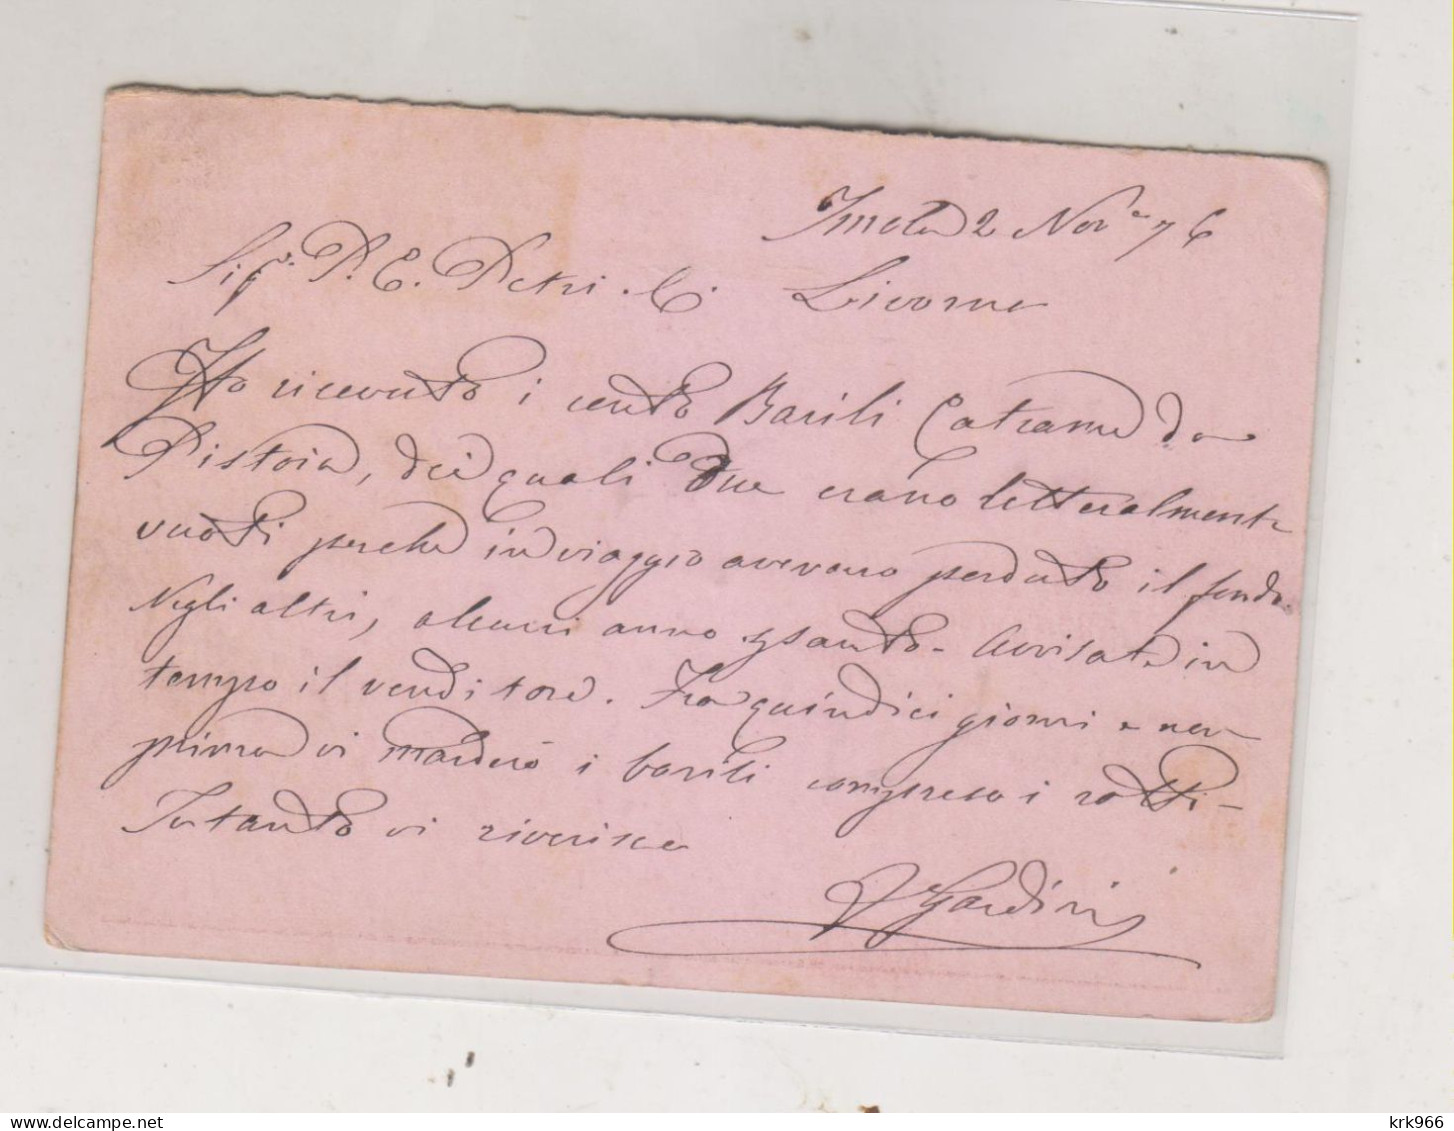 Imola 2 Nov.e 76
Sigr. P. E. Petri & C. Livorno
Ho ricevuto i cento Barili Catrame da
Pistoia, dei quali due erano letteralmente
vuoti perche in viaggio avevano perduto il fondo.
Negli altri, alcuni anno spanto. Avvisate in
tempo il venditore. Fra quindici giorni e non
prima vi manderò i barili compreso i rotti -
Intanto vi riverisco
Gardini
krk966